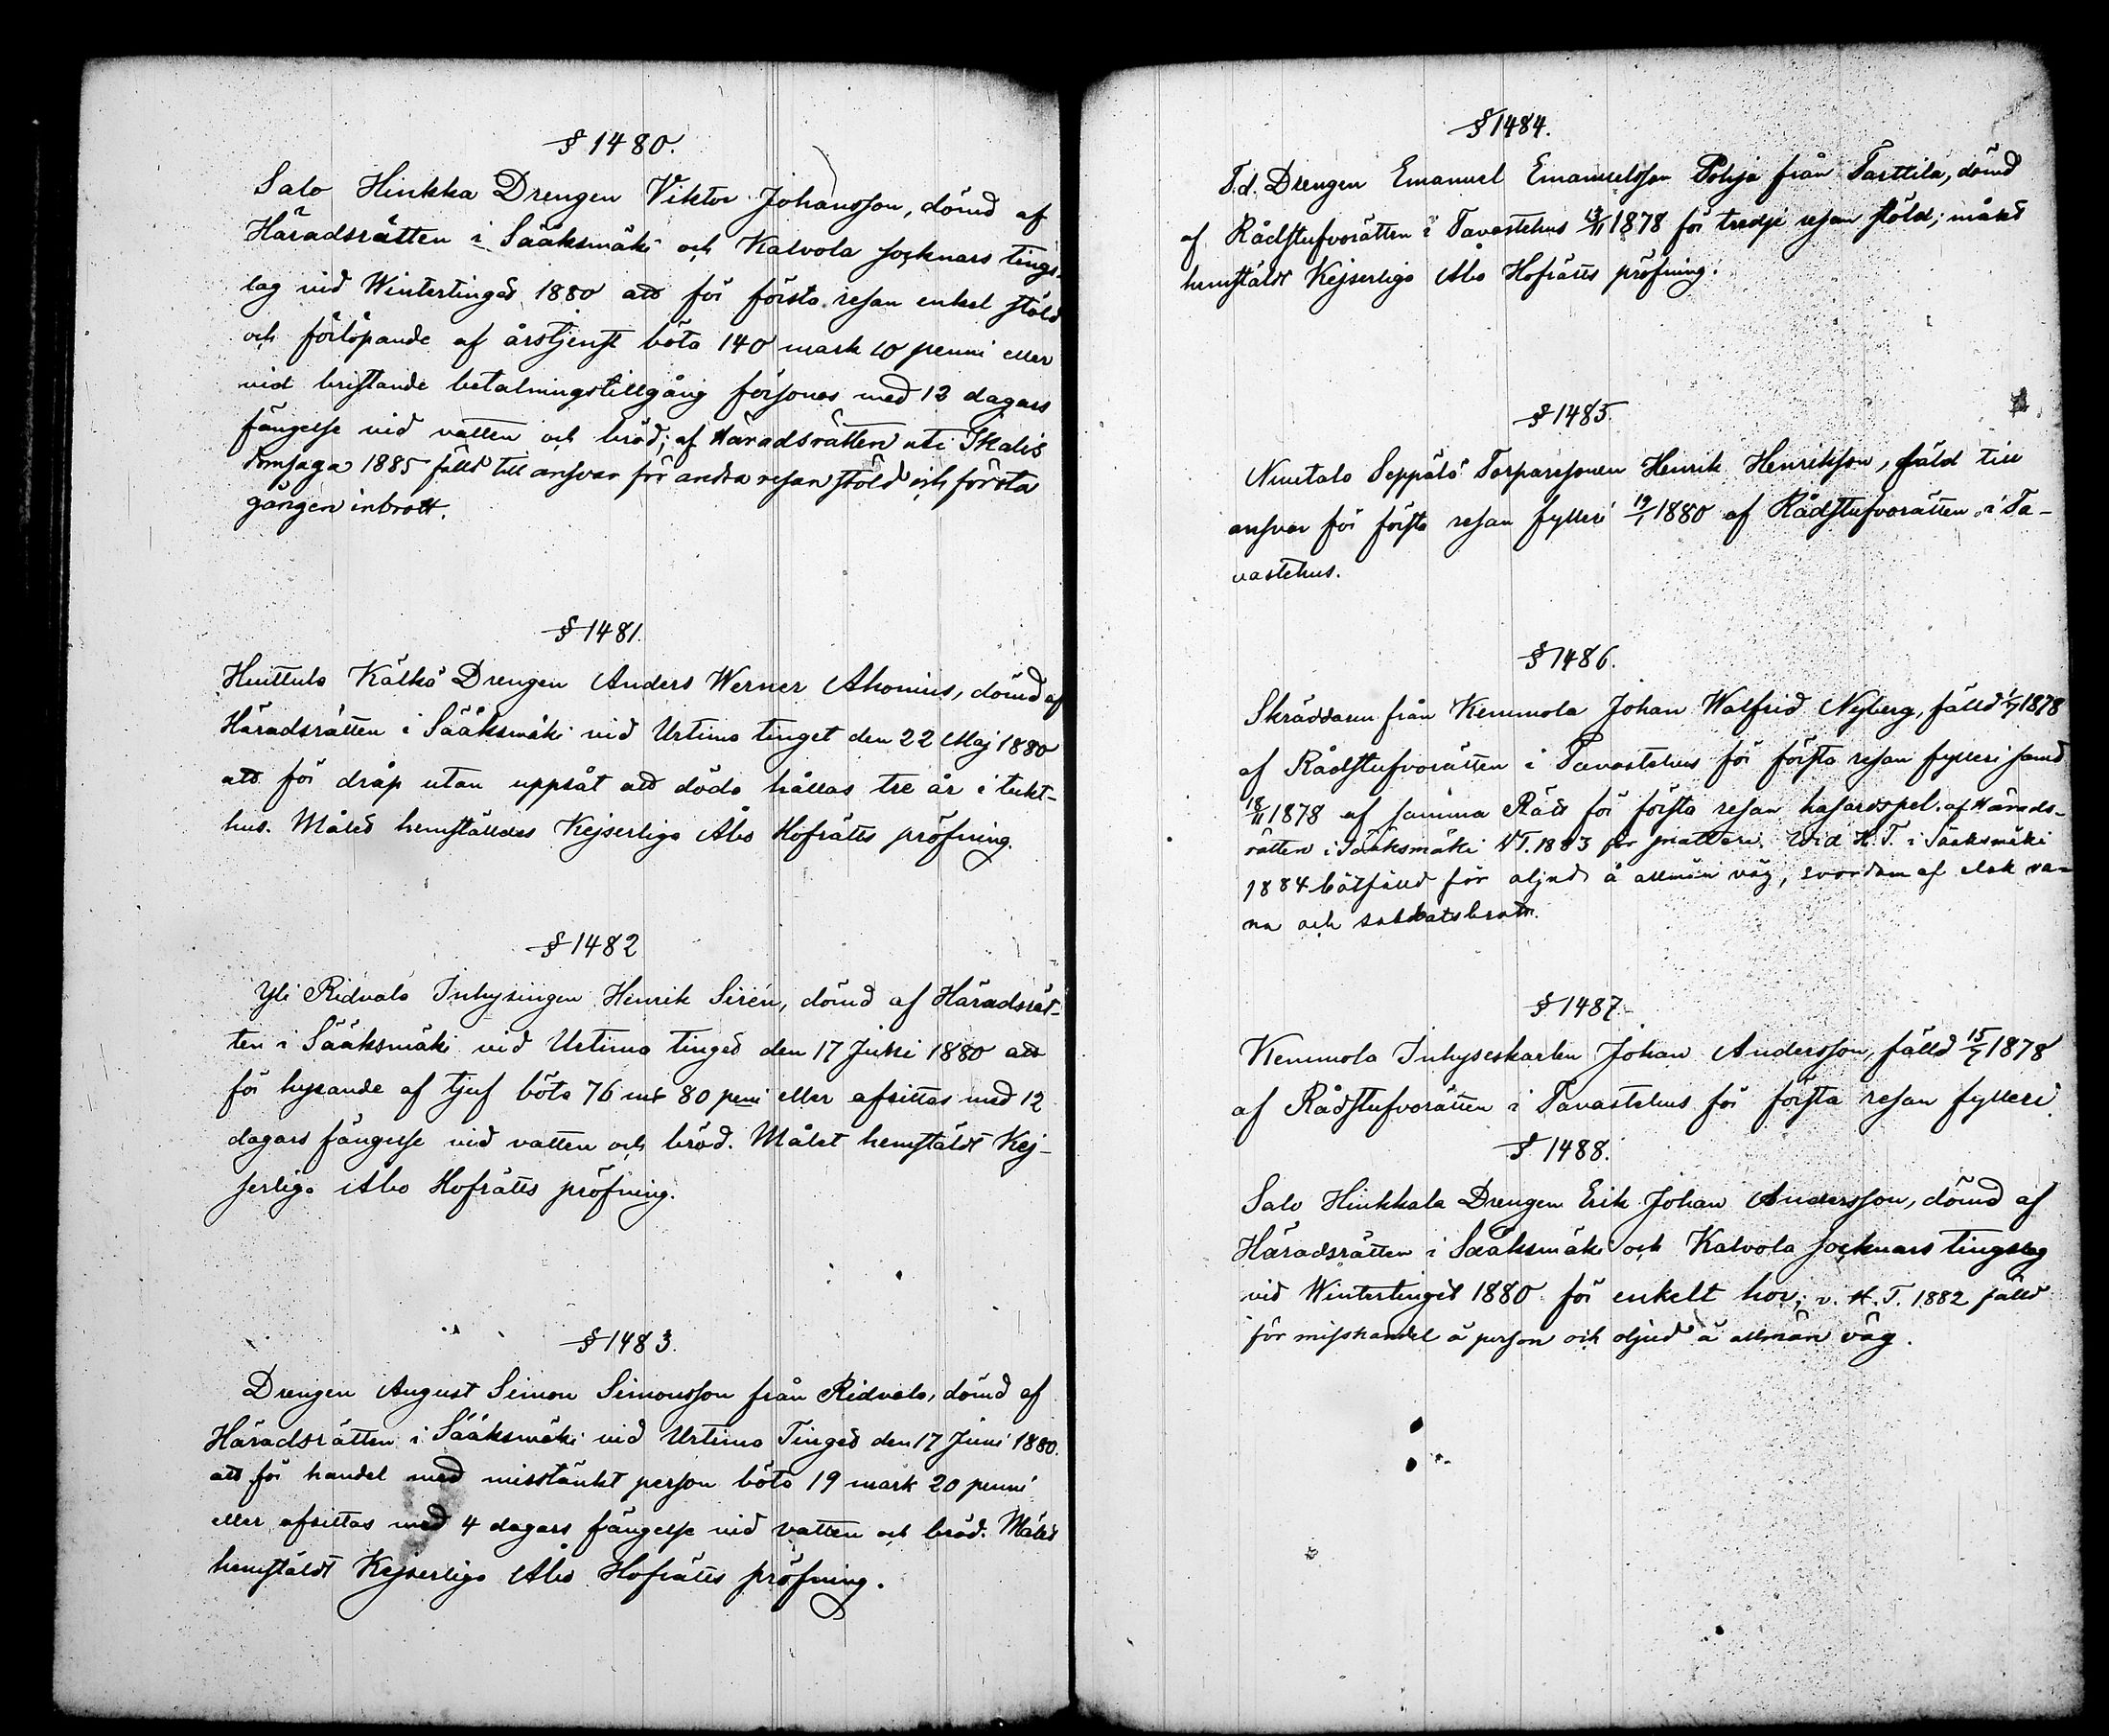 § 1480.
Salo Hinkka Drengen Viktor Johansson, dömd af
Häradsrätten i Sääksmäki och Kalvola socknars tings-
lag vid Wintertinget 1880 att för första resan enkel stöld
och förlöpande af årstjenst böta 140 mark 10 penni eller
vid bristande betalningstillgång försonas med 12 dagars
fängelse vid vatten och bröd; af Häradsrätten uti Ikalis
domsaga 1885 fälld till ansvar för andra resan stöld och första
gången inbrott.
§ 1481.
Huittula Kälkö Drengen Anders Werner Ahonius, dömd af
Häradsrätten i Sääksmäki vid Urtima tinget den 22 Maj 1880
att för dråp utan uppsåt att döda hållas tre år i tukt-
hus. Målet hemställdes Kejserliga Åbo Hofrätts pröfning.
§ 1482
Yli Ridvala Inhysingen Henrik Sirén, dömd af Häradsrät-
ten i Sääksmäki vid Urtima tinget den 17 Juni 1880 att
för hysande af tjuf böta 76 mk 80 peni eller afsittas med 12
dagars fängelse vid vatten och bröd. Målet hemstäldt Kej-
serliga Åbo Hofrätts pröfning.
§ 1483.
Drengen August Simon Simonsson från Ridvala, dömd af
Häradsrätten i Sääksmäki vid Urtima Tinget den 17 Juni 1880.
att för handel med misstänkt person böta 19 mark 20 penni
eller afsittas med 4 dagars fängelse vid vatten och bröd. Målet
hemstäldt Kejserliga Åbo Hofrätts pröfning.
§ 1484.
F.d. Drengen Emanuel Emanuelsson Pohja från Tarttila, dömd
af Rådstufvorätten i Tavastehus 13/11 1878 för tredje resan stöld; målet
hemstäldt Kejserliga Åbo Hofrätts pröfning.
§ 1485.
Seppälä Torparesonen Henrik Henriksson, fäld till
ansvar för första resan fylleri 19/1 1880 af Rådstufvorätten i Ta-
vastehus.
§ 1486.
Skräddaren från Kemmola Johan Walfrid Nyberg, fälld 1/7 1878
af Rådstufvorätten i Tavastehus för första resan fylleri samt
18/11 1878 af samma Rätt för första resan hasardspel. af Härads-
rätten i Sääksmäki VT. 1883 för snatteri. Vid H.T. i Sääksmäki
1884 bötfälld för oljud å allmän väg, svordom af elak va-
na och sabbatsbrott.
§ 1487.
Kemmola Inhyseskarlen Johan Andersson, fälld 15/7 1878
af Rådstufvorätten i Tavastehus för första resan fylleri.
§ 1488.
Salo Hinkkala Drengen Erik Johan Andersson, dömd af
Häradsrätten i Sääksmäki och Kalvola socknars tingslag
vid Wintertinget 1880 för enkelt hor; v. H.T. 1882 fälld
för misshandel å person och oljud å allmän väg.